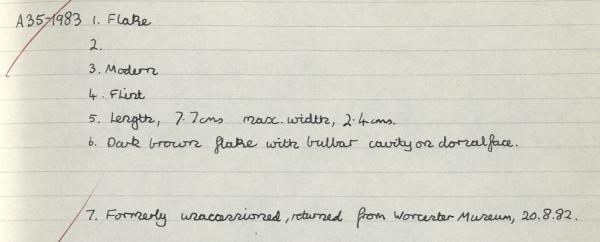 A35-1983 1. Flake
2.
3. Modern
4. Flint
5. Length, 7.7cms max. width, 2.4cms.
6. Dark brown flake with bulbar cavity on dorsal face.
7. Formerly unaccessioned, returned from Worcester Museum, 20.8.82.